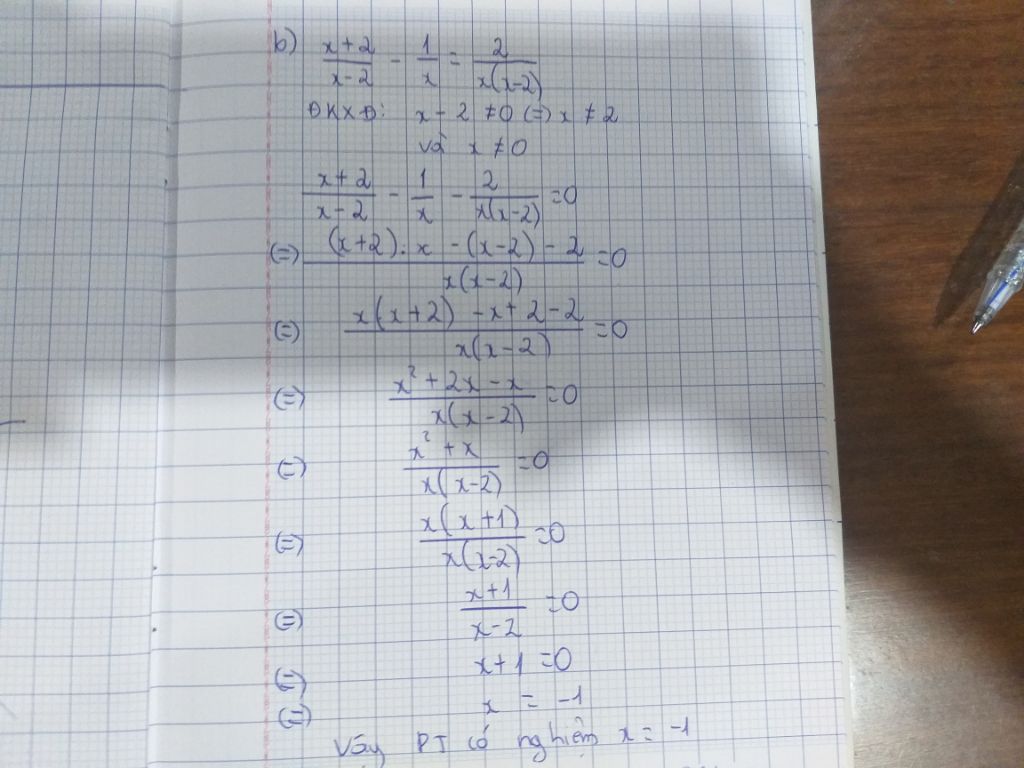 b) \frac{x+2}{x-2} - \frac{1}{x} = \frac{2}{x(x-2)}
ĐKXĐ: x - 2 ≠ 0 (=) x ≠ 2
và x ≠ 0
\frac{x+2}{x-2} - \frac{1}{x} - \frac{2}{x(x-2)} = 0
(=) \frac{(x+2).x - (x-2) - 2}{x(x-2)} = 0
(=) \frac{x(x+2) - x + 2 - 2}{x(x-2)} = 0
(=) \frac{x² + 2x - x}{x(x-2)} = 0
(=) \frac{x² + x}{x(x-2)} = 0
(=) \frac{x(x+1)}{x(x-2)} = 0
(=) \frac{x+1}{x-2} = 0
(=) x+1 = 0
(=) x = -1
Vây PT có nghiệm x = -1